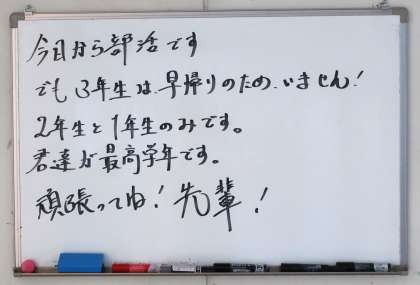 今日から部活です
でも3年生は早帰りのため、いません!
2年生と1年生のみです。
君達が最高学年です。
頑張ってね!先輩!